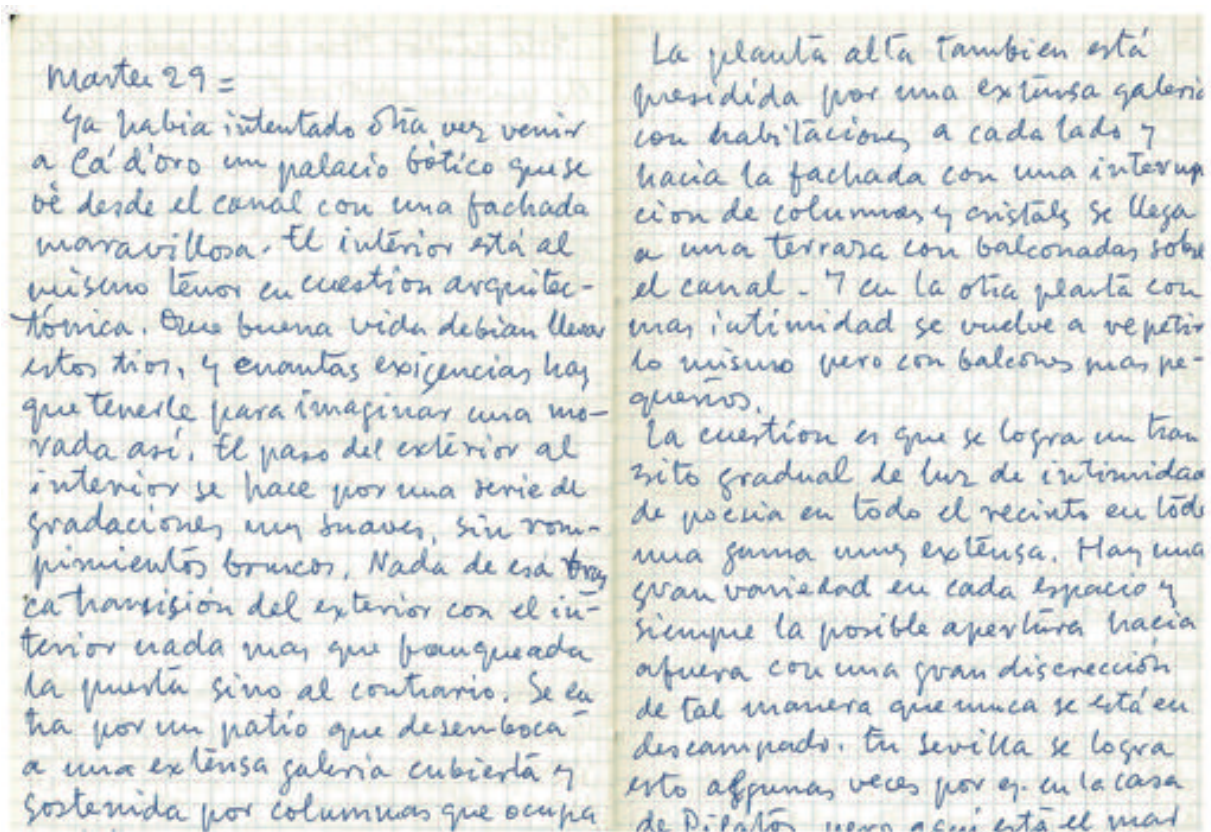 Martes 29 =
Ya habia intentado otra vez venir
a Cá d'oro un palacio gótico que se
vé desde el canal con una fachada
maravillosa. El interior está al
mismo tenor en cuestion arquitec-
tónica. Que buena vida debian llevar
estos tios, y cuantas exigencias hay
que tenerle para imaginar una mo-
rada así. El paso del exterior al
interior se hace por una serie de
gradaciones muy suaves, sin rom-
pimientos bruscos. Nada de esa brus
ca transisión del exterior con el in-
terior nada mas que franqueada
la puerta sino al contrario. Se en
tra por un patio que desemboca
a una extensa galeria cubierta y
sostenida por columnas que ocupa
La planta alta tambien está
presidida por una extensa galeria
con habitaciones a cada lado y
hacia la fachada con una interrup
cion de columnas y cristales se llega
a una terraza con balconadas sobre
el canal - Y en la otra planta con
mas intimidad se vuelve a repetir
lo mismo pero con balcones mas pe-
queños.
La cuestion es que se logra un tran
sito gradual de luz de intimidad
de poesia en todo el recinto en toda
una gama muy extensa. Hay una
gran variedad en cada espacio y
siempre la posible apertura hacia
afuera con una gran discrección
de tal manera que nunca se está en
descampado. En Sevilla se logra
esto algunas veces por ej. en la casa
de Pilatos pero aqui está el mar